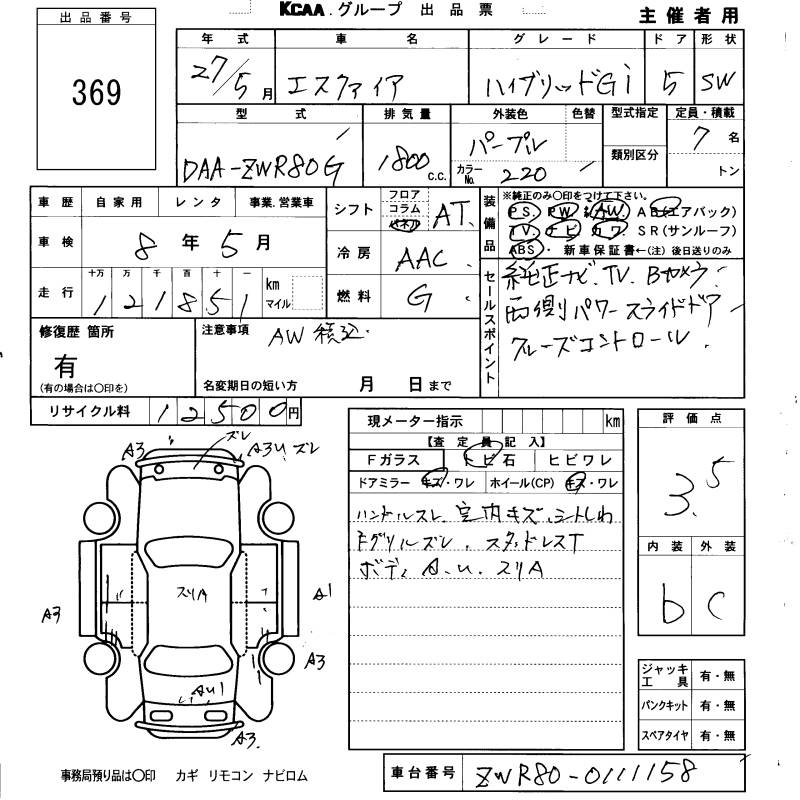 KCAA.グループ 出品票
主催者用
出品番号
369
年式 車名 グレード ドア 形状
27/5月 エスクァイア ハイブリッドGi 5 SW
型式 排気量 外装色 色替 型式指定 定員・積載
DAA-ZWR80G 1800 c.c. パープル カラーNo. 220 類別区分 7名 トン
車歴 自家用 レンタ 事業.営業車
車検 8年5月
走行 十万 万 千 百 十 一 km マイル
121851
シフト フロア コラム パネル AT
冷房 AAC
燃料 G
装備品 ※純正のみ〇印をつけて下さい。
PS. PW. AW. AB(エアバック)
TV. ナビ カワ. SR(サンルーフ)
ABS・新車保証書←(注)後日送りのみ
セールスポイント
純正ナビ.TV.Bカメラ
両側パワースライドドア
クルーズコントロール
修復歴 箇所
有
(有の場合は〇印を)
注意事項 AW積込
名変期日の短い方 月 日まで
リサイクル料 12500円
現メーター指示 km
【査定員記入】
Fガラス トビ石 ヒビワレ
ドアミラー キズ・ワレ ホイール(CP) キズ・ワレ
ハンドルスレ.室内キズ.シートしわ
Fグリルズレ.スタッドレスT
ボディA.U.スリA
評価点
3.5
内装 外装
b C
ジャッキ工具 有・無
パンクキット 有・無
スペアタイヤ 有・無
A3 ズレ A3U ズレ
スリA
A3 A1
A3
AU1
A3
事務局預り品は〇印 カギ リモコン ナビロム
車台番号 ZWR80-0111158